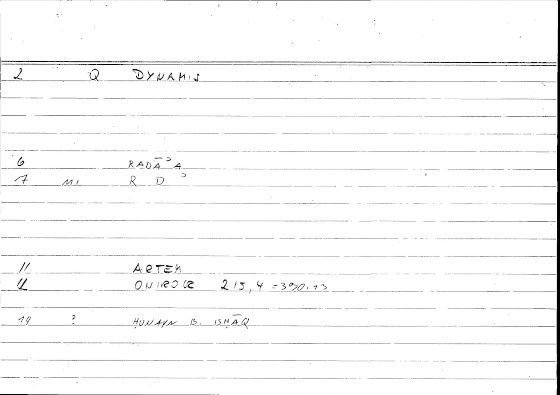 2 Q DYNAMIS
6 RADĀʾA
7 M1 R D ʾ
11 ARTEM
12 ONIROCR 213,4 = 390.13
14 ? ḤUNAYN B. ISḤĀQ